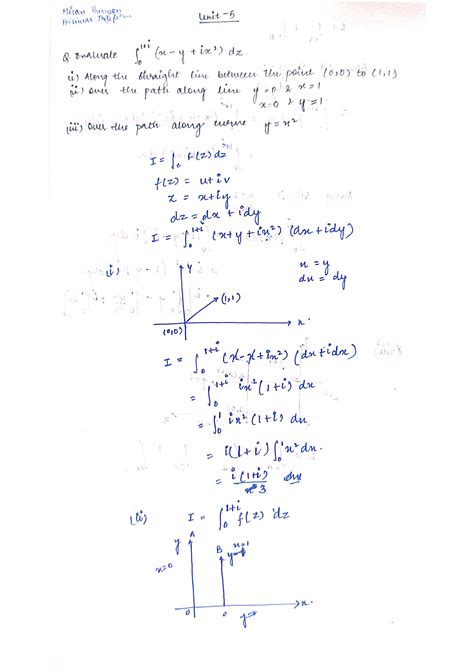 Unit-5
Q. Evaluate ∫₀¹⁺ⁱ (x - y + ix²) dz
i) Along the straight line between the point (0,0) to (1,1)
ii) Over the path along line y=0 & x=1
x=0 & y=1
iii) Over the path along curve y = x²
I = ∫₀ f(z) dz
f(z) = u + iv
z = x + iy
dz = dx + idy
I = ∫₀¹⁺ⁱ (x + y + ix²) (dx + idy)
i)
y
x = y
dx = dy
(1,1)
(0,0)
x
I = ∫₀¹⁺ⁱ (x - x + ix²) (dx + idx)
= ∫₀¹⁺ⁱ ix² (1+i) dx
= ∫₀¹ ix² (1+i) dx
= i(1+i) ∫₀¹ x² dx.
= i(1+i)
3
(ii) I = ∫₀¹⁺ⁱ f(z) dz
y A
B x=1
x=0
0
x